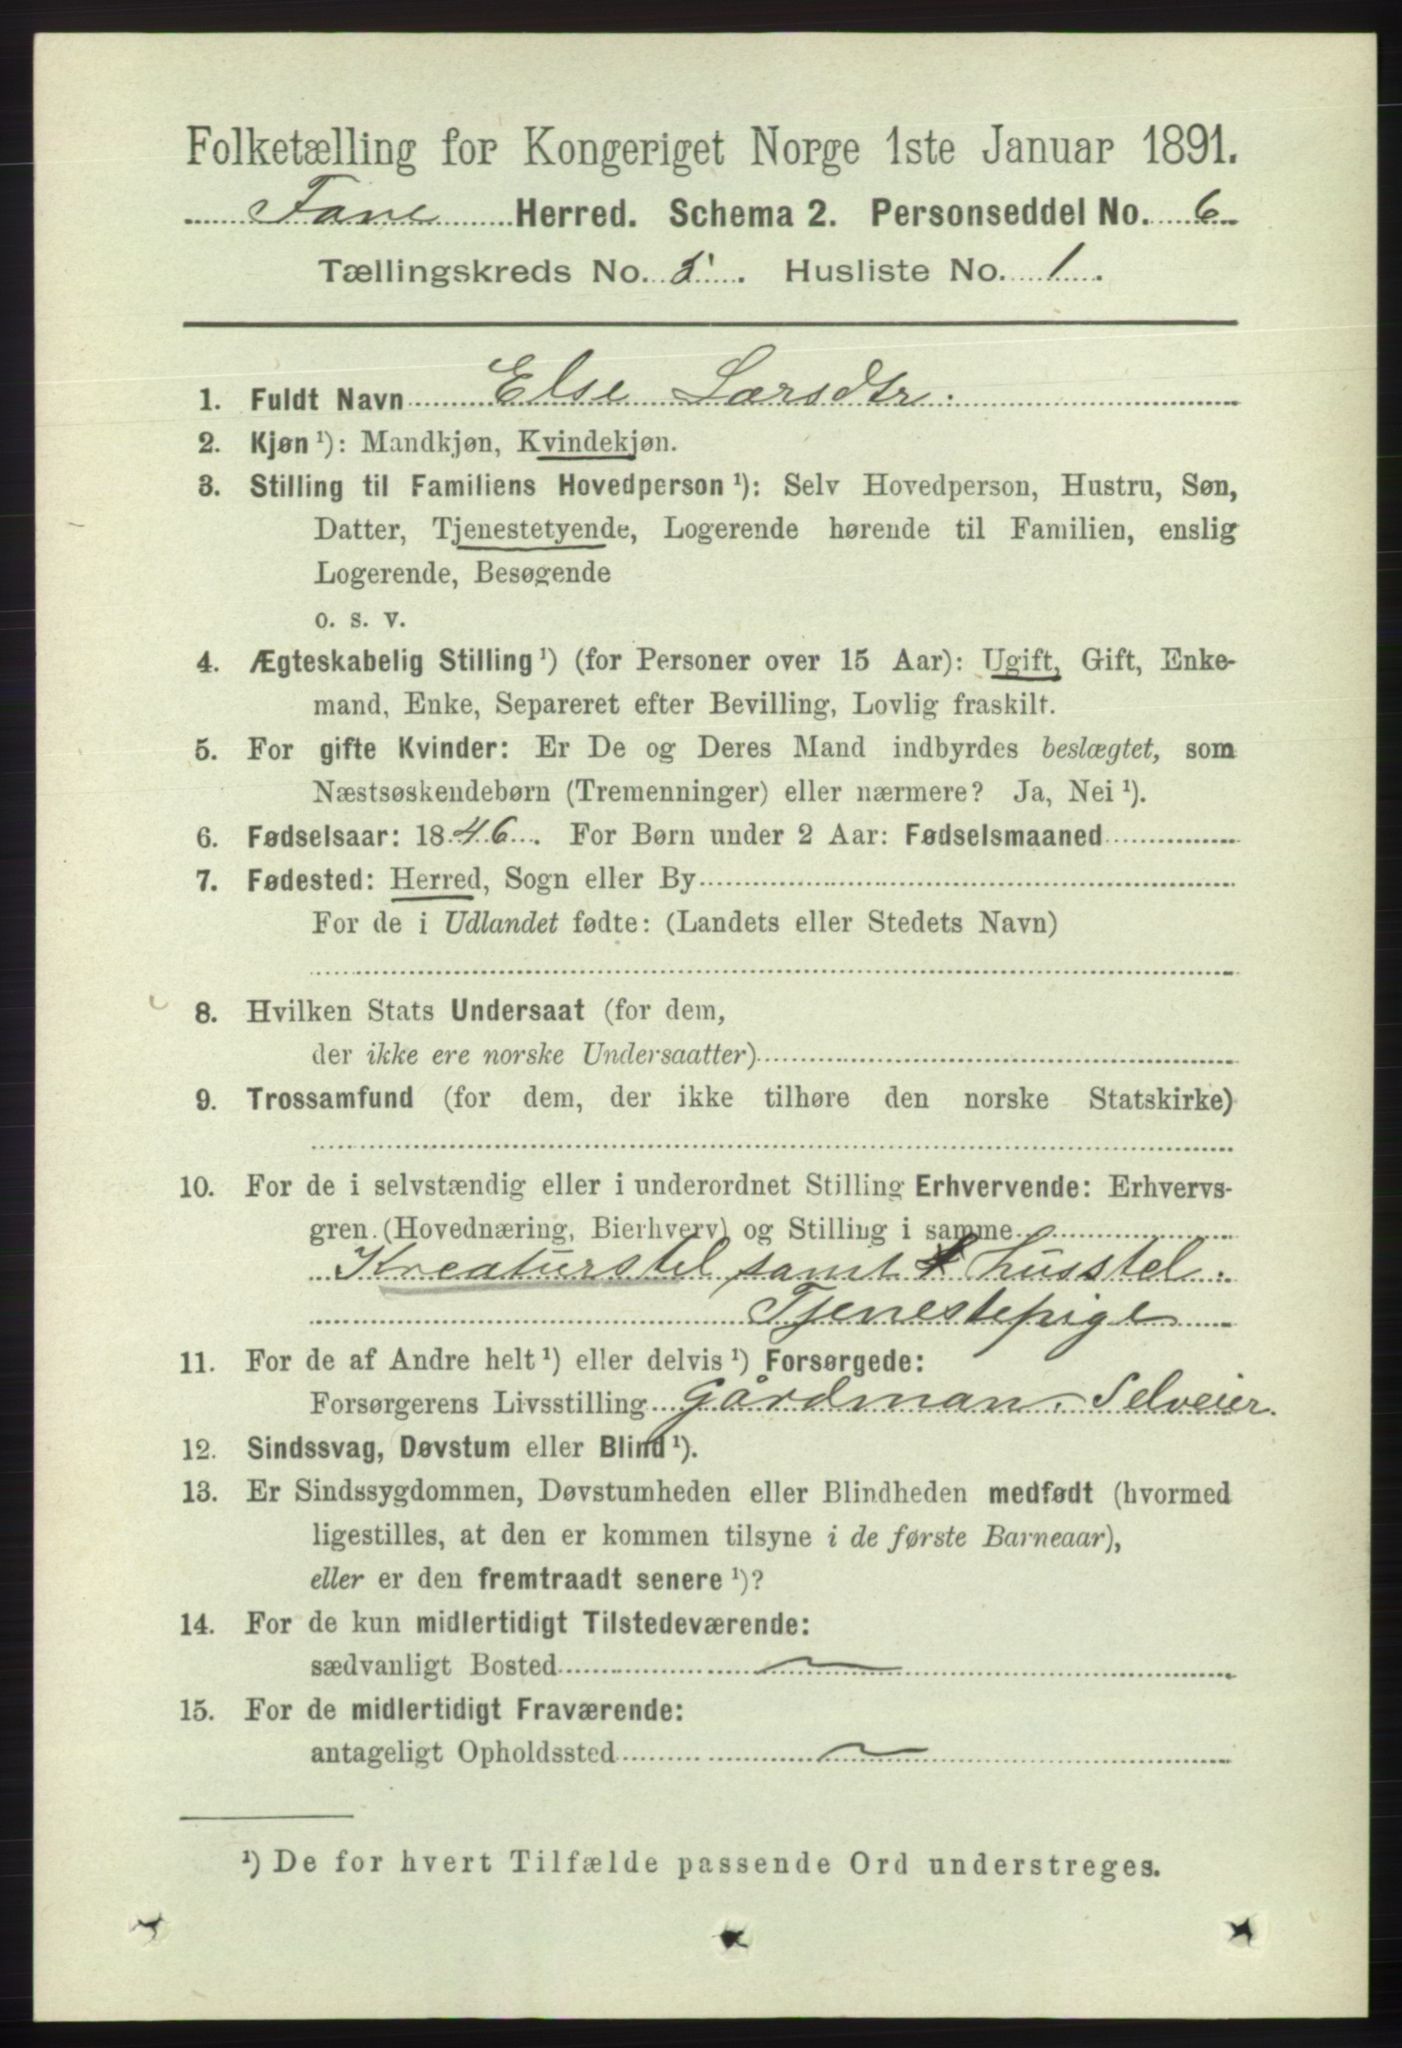 Folketælling for Kongeriget Norge 1ste Januar 1891.
Fane Herred. Schema 2. Personseddel No. 6
Tællingskreds No. 5. Husliste No. 1.
1. Fuldt Navn Else Larsdtr.
2. Kjøn ¹): Mandkjøn, Kvindekjøn.
3. Stilling til Familiens Hovedperson ¹): Selv Hovedperson, Hustru, Søn,
Datter, Tjenestetyende, Logerende hørende til Familien, enslig
Logerende, Besøgende
o. s. v.
4. Ægteskabelig Stilling ¹) (for Personer over 15 Aar): Ugift, Gift, Enke-
mand, Enke, Separeret efter Bevilling, Lovlig fraskilt.
5. For gifte Kvinder: Er De og Deres Mand indbyrdes beslægtet, som
Næstsøskendebørn (Tremenninger) eller nærmere? Ja, Nei ¹).
6. Fødselsaar: 1846. For Børn under 2 Aar: Fødselsmaaned
7. Fødested: Herred, Sogn eller By
For de i Udlandet fødte: (Landets eller Stedets Navn)
8. Hvilken Stats Undersaat (for dem,
der ikke ere norske Undersaatter)
9. Trossamfund (for dem, der ikke tilhøre den norske Statskirke)
10. For de i selvstændig eller i underordnet Stilling Erhvervende: Erhvervs-
gren (Hovednæring, Bierhverv) og Stilling i samme
Kreaturstel samt Husstel.
Tjenestepige
11. For de af Andre helt ¹) eller delvis ¹) Forsørgede:
Forsørgerens Livsstilling Gårdman. Selveier.
12. Sindssvag, Døvstum eller Blind ¹).
13. Er Sindssygdommen, Døvstumheden eller Blindheden medfødt (hvormed
ligestilles, at den er kommen tilsyne i de første Barneaar),
eller er den fremtraadt senere ¹)?
14. For de kun midlertidigt Tilstedeværende:
sædvanligt Bosted
15. For de midlertidigt Fraværende:
antageligt Opholdssted
¹) De for hvert Tilfælde passende Ord understreges.